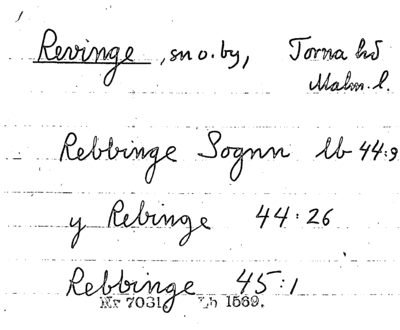 Revinge, sn o. by, Torna hd
Malm. l.
Rebbinge Sognn lb 44:9
y Rebinge 44:26
Rebbinge 45:1
Nr 7031, Lh 1569.